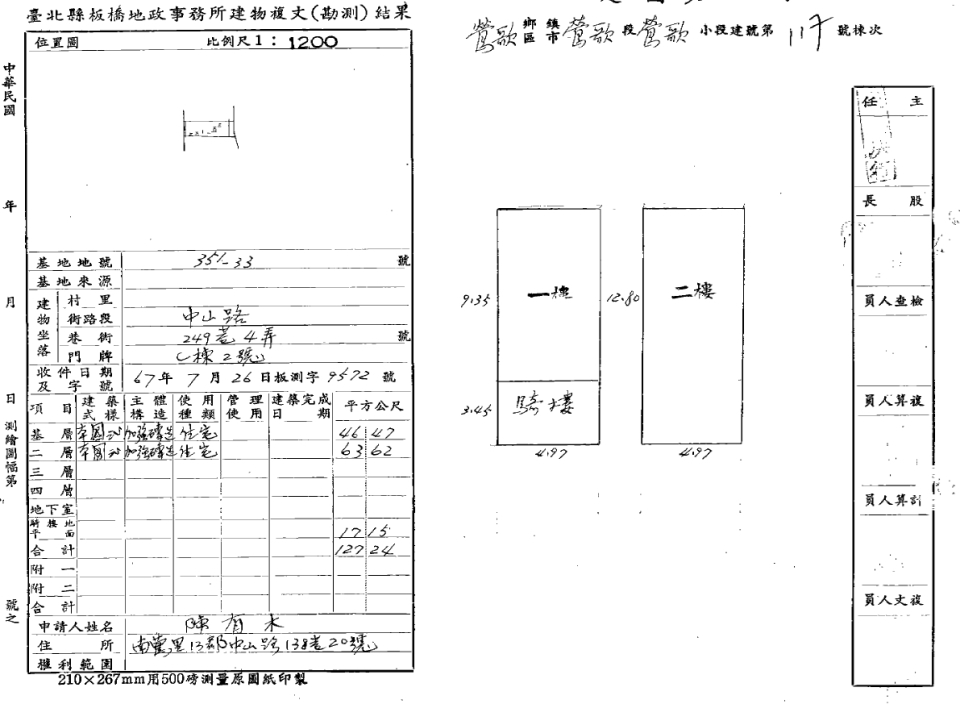 臺北縣板橋地政事務所建物複丈(勘測)結果
位置圖 比例尺1:1200
中華民國 年 月 日 測繪圖幅第 號之
基地地號 351-33 號
基地來源
建物坐落
村里
街路段 中山路
巷衖 249巷4弄 號
門牌 C棟2號
收件日期及字號 67年7月26日板測字9572號
項目 建築式樣 主體構造 使用種類 管理使用 建築完成日期 平方公尺
基層 本國式 加強磚造 住宅 46 47
二層 本國式 加強磚造 住宅 63 62
三層
四層
地下室
騎樓地平面 17 15
合計 127 24
附一
附二
合計
申請人姓名 陳有木
住所 南鶯里13鄰中山路138巷20號
權利範圍
210×267mm用500磅測量原圖紙印製
鶯歌 鄉鎮區市 鶯歌 段 鶯歌 小段建號第 117 號棟次
一樓
二樓
9.35
12.80
騎樓
3.45
4.97
4.97
任主
長股
員人查檢
員人算複
員人算計
員人丈複